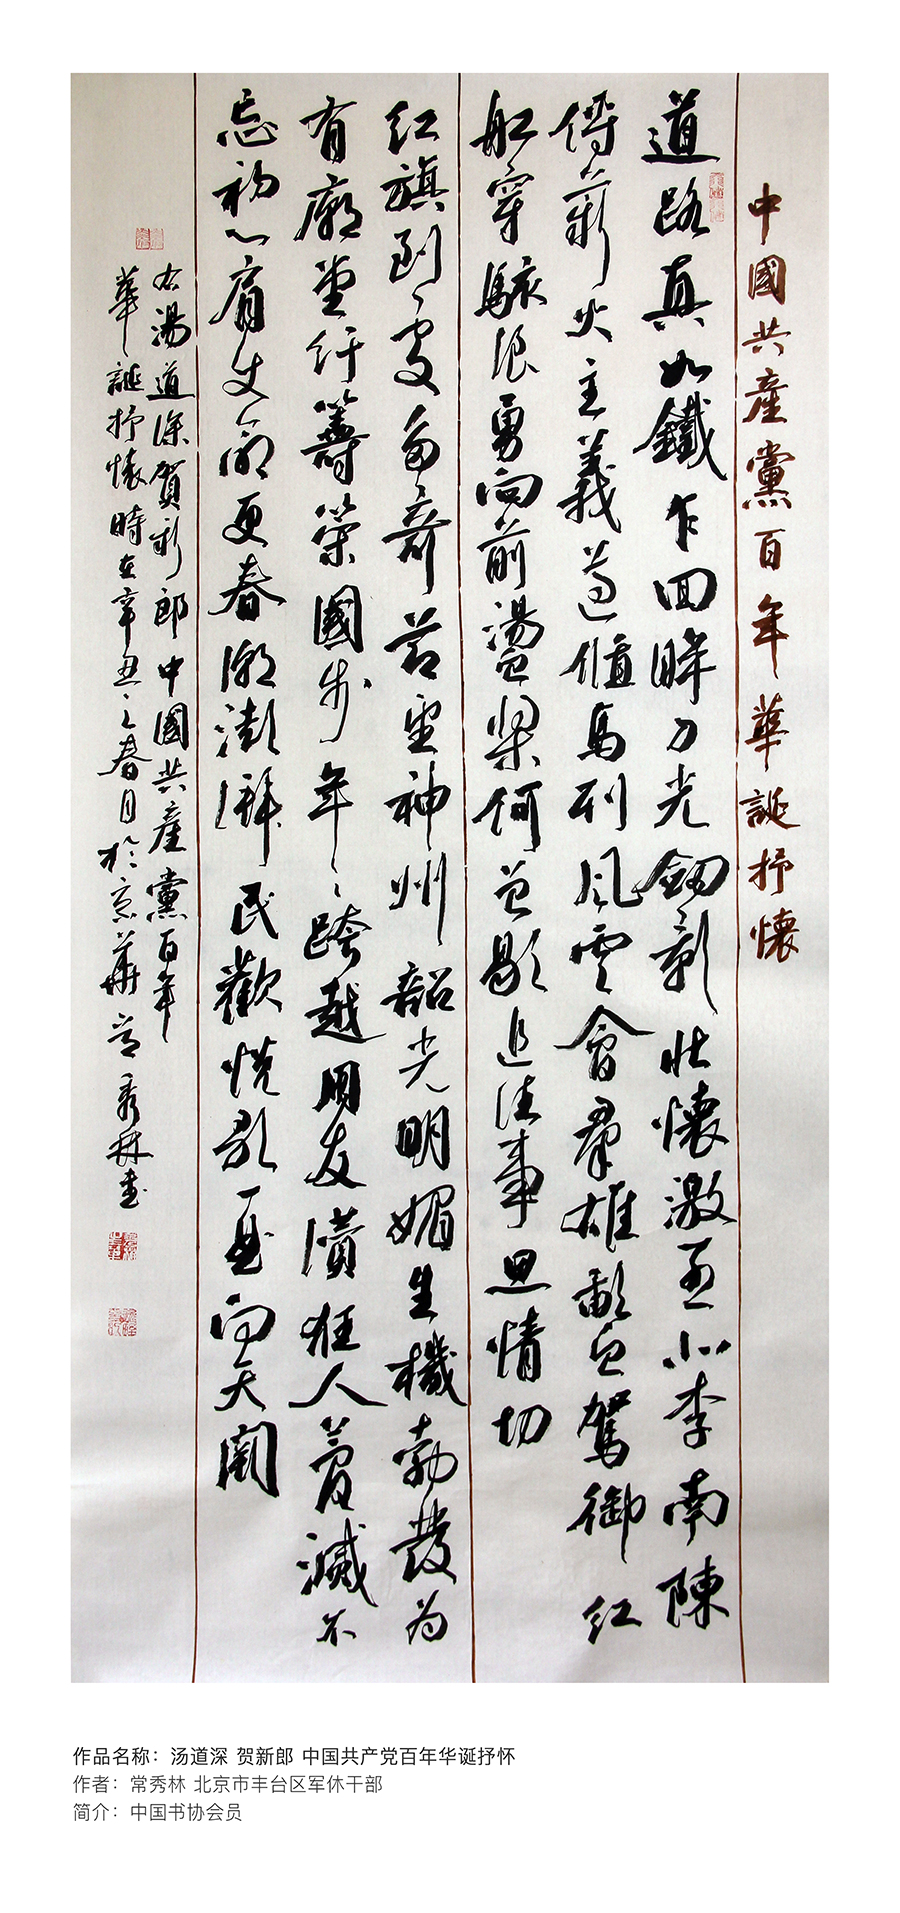 中國共產黨百年華誕抒懷
道路真如鐵乍回眸刀光劍影壯懷激烈北李南陳
傳薪火主義遵循馬列風雲會群雄歃血駕御紅
船穿駭浪勇向前盪槳何曾歇追往事思情切
紅旗到處多奇望神州韶光明媚生機勃發為
有廟堂紆籌策國步年〻跨越朋友讚狂人夢滅不
忘初心肩使命更春潮澎湃民歡悅歌一曲向天闕
右湯道深賀新郎中國共產黨百年
華誕抒懷時在辛丑之春月於京華常秀林書
作品名称：汤道深 贺新郎 中国共产党百年华诞抒怀
作者：常秀林 北京市丰台区军休干部
简介：中国书协会员